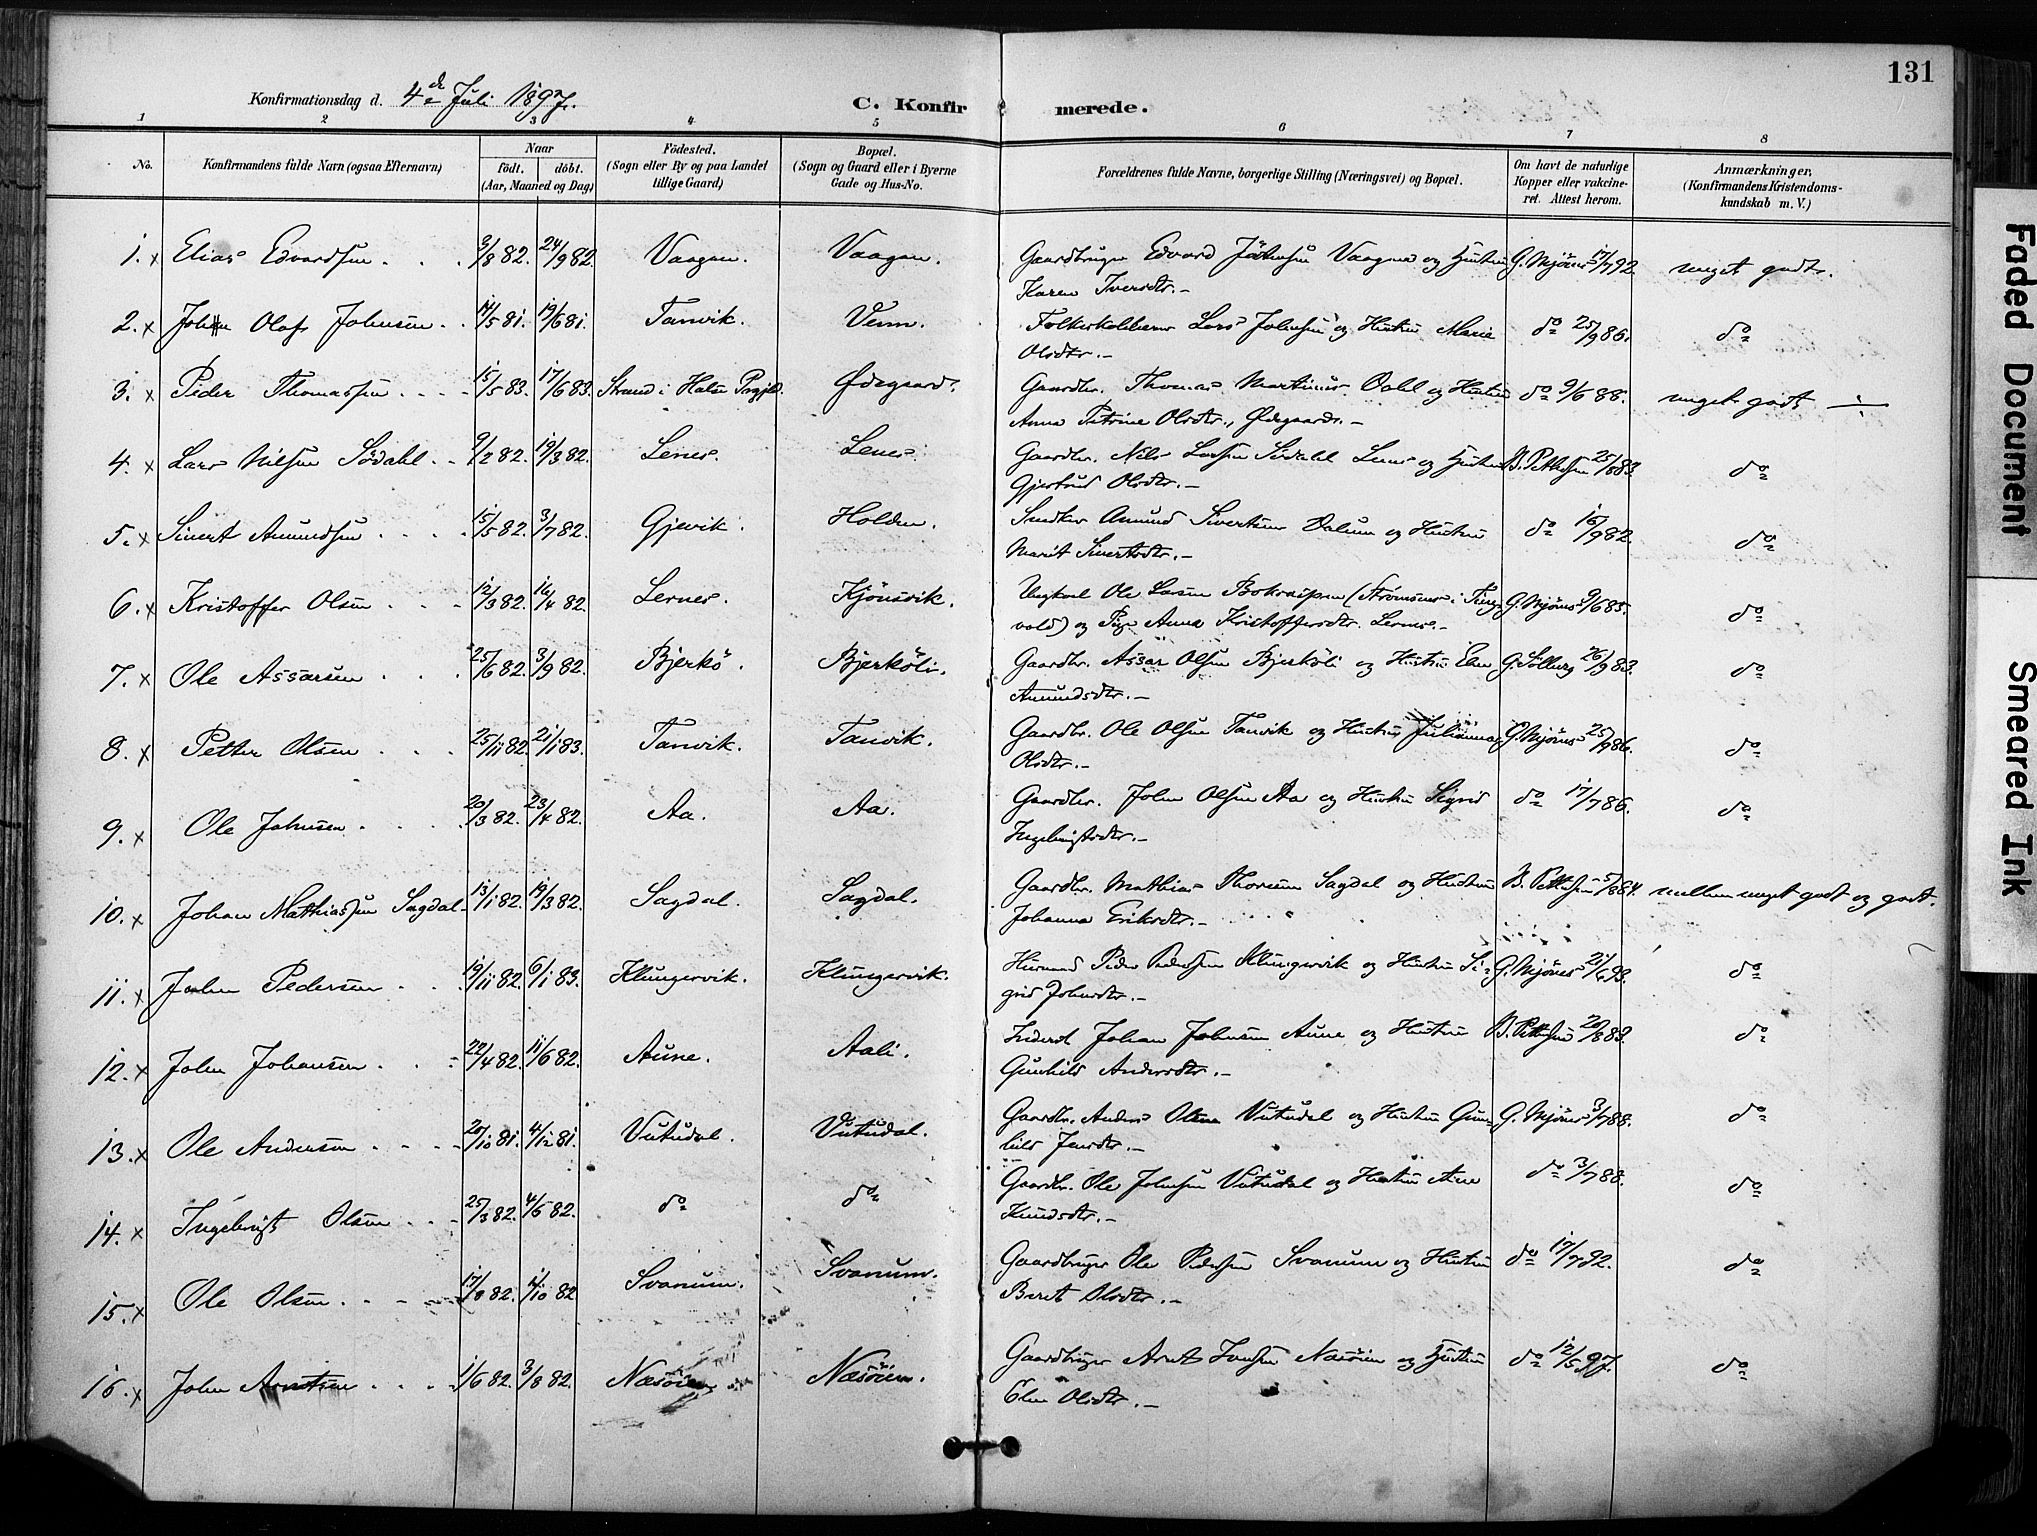 131
Konfirmationsdag d. 4de Juli 1897.
C. Konfirmerede.
1 2 3 4 5 6 7 8
No.
Konfirmandens fulde Navn (ogsaa Efternavn)
Naar
födt. döbt.
(Aar, Maaned og Dag)
Födested.
(Sogn eller By og paa Landet
tillige Gaard)
Bopæl.
(Sogn og Gaard eller i Byerne
Gade og Hus-No.
Forældrenes fulde Navne, borgerlige Stilling (Næringsvei) og Bopæl.
Om havt de naturlige
Kopper eller vakcine-
ret. Attest herom.
Anmærkninger,
(Konfirmandens Kristendoms-
kundskab m. V.)
1. x Elias Edvardsen . . . 3/8 82. 24/9 82. Vaagan. Vaagan. Gaardbruger Edvard Johnsen Vaagan og Hustru G. Mjönes 17/7 92 meget godt.
Karen Iversdtr. -
2. x John Olaf Johnsen . . 14/5 81. 19/6 81. Tanvik. Venn. Folkeskolelærer Lars Johnsen og Hustru Marie do 25/9 86. do
Olsdtr. -
3. x Peder Thomassen . . . . 15/5 83. 17/6 83. Strand i Halse Prgjld. Ödegaard. Gaardbr. Thomas Martinus Dahl og Hustru do 9/6 88. meget godt
Anna Petrine Olsdtr., Ødegaard. -
4. x Lars Nilsen Södahl . . 9/2 82. 19/3 82. Lenes. Lenes. Gaardbr. Nils Larsen Södahl Lenes og Hustru B. Pettersen 25/8 83. do
Gjertrud Olsdtr. -
5. x Sivert Amundsen . . . . 15/5 82. 3/7 82. Gjevik. Holden. Snedker Amund Sivertsen Dalum og Hustru do 16/9 82. do
Marit Sivertsdtr. -
6. x Kristoffer Olsen . . . 12/3 82. 16/4 82. Lernes. Kjönsvik. Ungkarl Ole Larsen (Strömsnes i Ting- G. Mjönes 9/6 85. do
vold) og Pige Anna Kristoffersdtr. Lernes. -
7. x Ole Assarsen . . . 25/6 82. 3/9 82. Bjerkö. Bjerköli. Gaardbr. Assar Olsen Bjerköli og Hustru Elen G. Solberg 26/9 83. do
Amundsdtr. -
8. x Petter Olsen . . . 25/11 82. 21/1 83. Tanvik. Tanvik. Gaardbr. Ole Olsen Tanvik og Hustru Julianna G. Mjönes 25/9 86. do
Olsdtr. -
9. x Ole Johnsen . . . . 20/3 82. 23/4 82. Aa. Aa. Gaardbr. John Olsen Aa og Hustru Sigrid do 17/7 86. do
Ingebrigtsdtr. -
10. x Johan Mathiassen Sagdal. 13/1 82. 19/3 82. Sagdal. Sagdal. Gaardbr. Mathias Thoresen Sagdal og Hustru B. Pettersen 5/8 84. mellem meget godt og godt.
Johanna Eriksdtr. -
11. x John Pedersen . . . 19/11 82. 6/1 83. Klungervik. Klungervik. Husmand Peder Pedersen Klungervik og Hustru Si- G. Mjönes 21/6 93. do
grid Johnsdtr. -
12. x John Johansen . . . 22/4 82. 11/6 82. Aune. Aali. Inderst Johan Johnsen Aune og Hustru B. Pettersen 20/8 83. do
Gunhild Andersdtr. -
13. x Ole Andersen . . . . 20/10 81. 4/12 81. Vutudal. Vutudal. Gaardbr. Anders Olsen Vutudal og Hustru Gun- G. Mjönes 3/7 88. do
hild Jensdtr. -
14. x Ingebrigt Olsen . . . 25/3 82. 4/6 82. do do Gaardbr. Ole Johnsen Vutudal og Hustru Ane do 3/7 88. do
Knudsdtr. -
15. x Ole Olsen . . . . 17/8 82. 1/10 82 Svanum. Svanum. Gaardbruger Ole Pedersen Svanum og Hustru do 17/7 92. do
Beret Olsdtr. -
16. x John Arntsen . . . . 1/6 82. 3/8 82. Næsöien Næsöien. Gaardbruger Arnt Næsöien og Hustru do 12/5 97. do
Elen Olsdtr. -
Faded Document
Smeared Ink